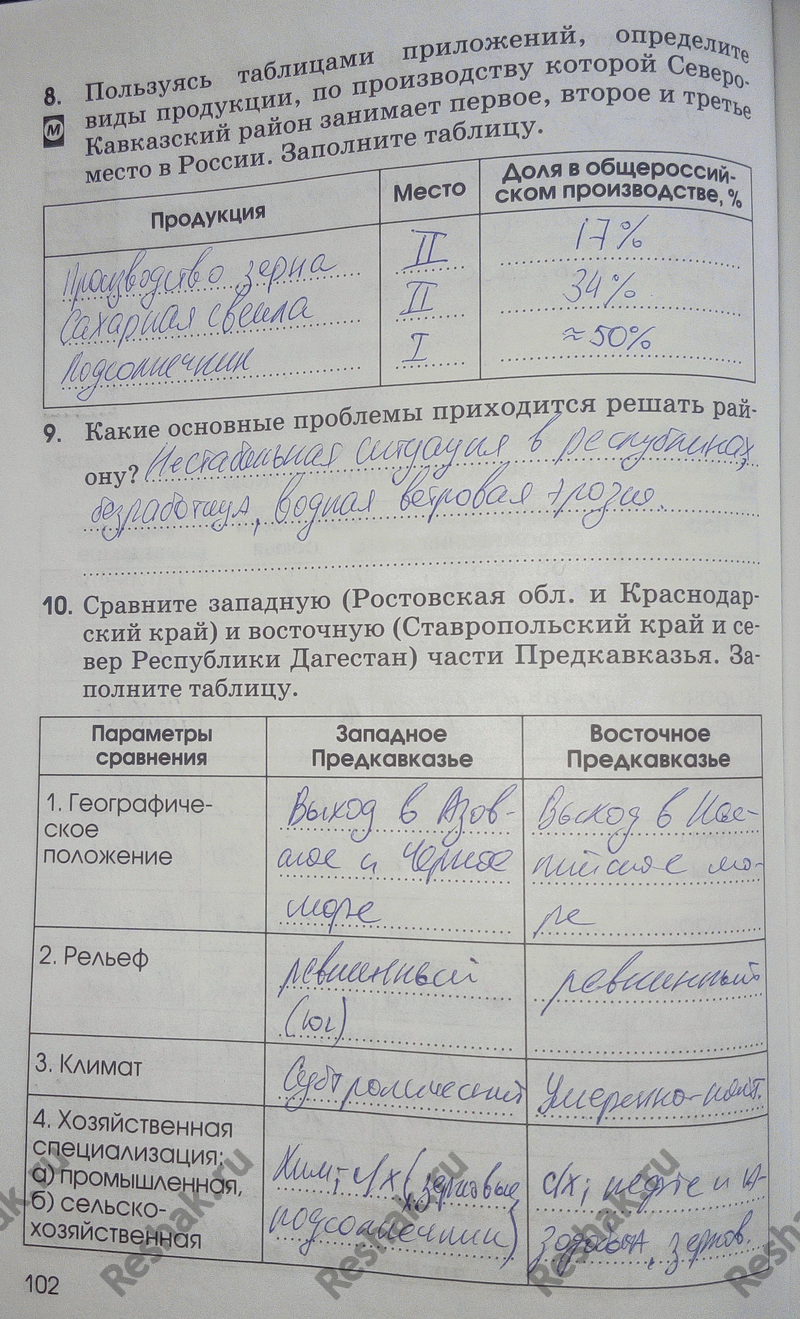 8. Пользуясь таблицами приложений, определите
М виды продукции, по производству которой Северо-
Кавказский район занимает первое, второе и третье
место в России. Заполните таблицу.
Продукция Место Доля в общероссий-
ском производстве, %
Производство зерна II 17%
Сахарная свекла II 34%
Подсолнечник I ≈50%
9. Какие основные проблемы приходится решать рай-
ону? Нестабильная ситуация в республиках,
безработица, водная ветровая эрозия.
10. Сравните западную (Ростовская обл. и Краснодар-
ский край) и восточную (Ставропольский край и се-
вер Республики Дагестан) части Предкавказья. За-
полните таблицу.
Параметры
сравнения
Западное
Предкавказье
Восточное
Предкавказье
1. Географиче-
ское
положение
Выход в Азов-
ское и Черное
море
Выход в Кас-
пийское мо-
ре
2. Рельеф
равнинный
(юг)
равнинный
3. Климат
Субтропический
Умеренно-конт.
4. Хозяйственная
специализация:
а) промышленная,
б) сельско-
хозяйственная
Хим; с/х (зерновые,
подсолнечник)
с/х; нефте и га-
зодобыча, зернов.
102
Reshak.ru
Reshak.ru
Reshak.ru